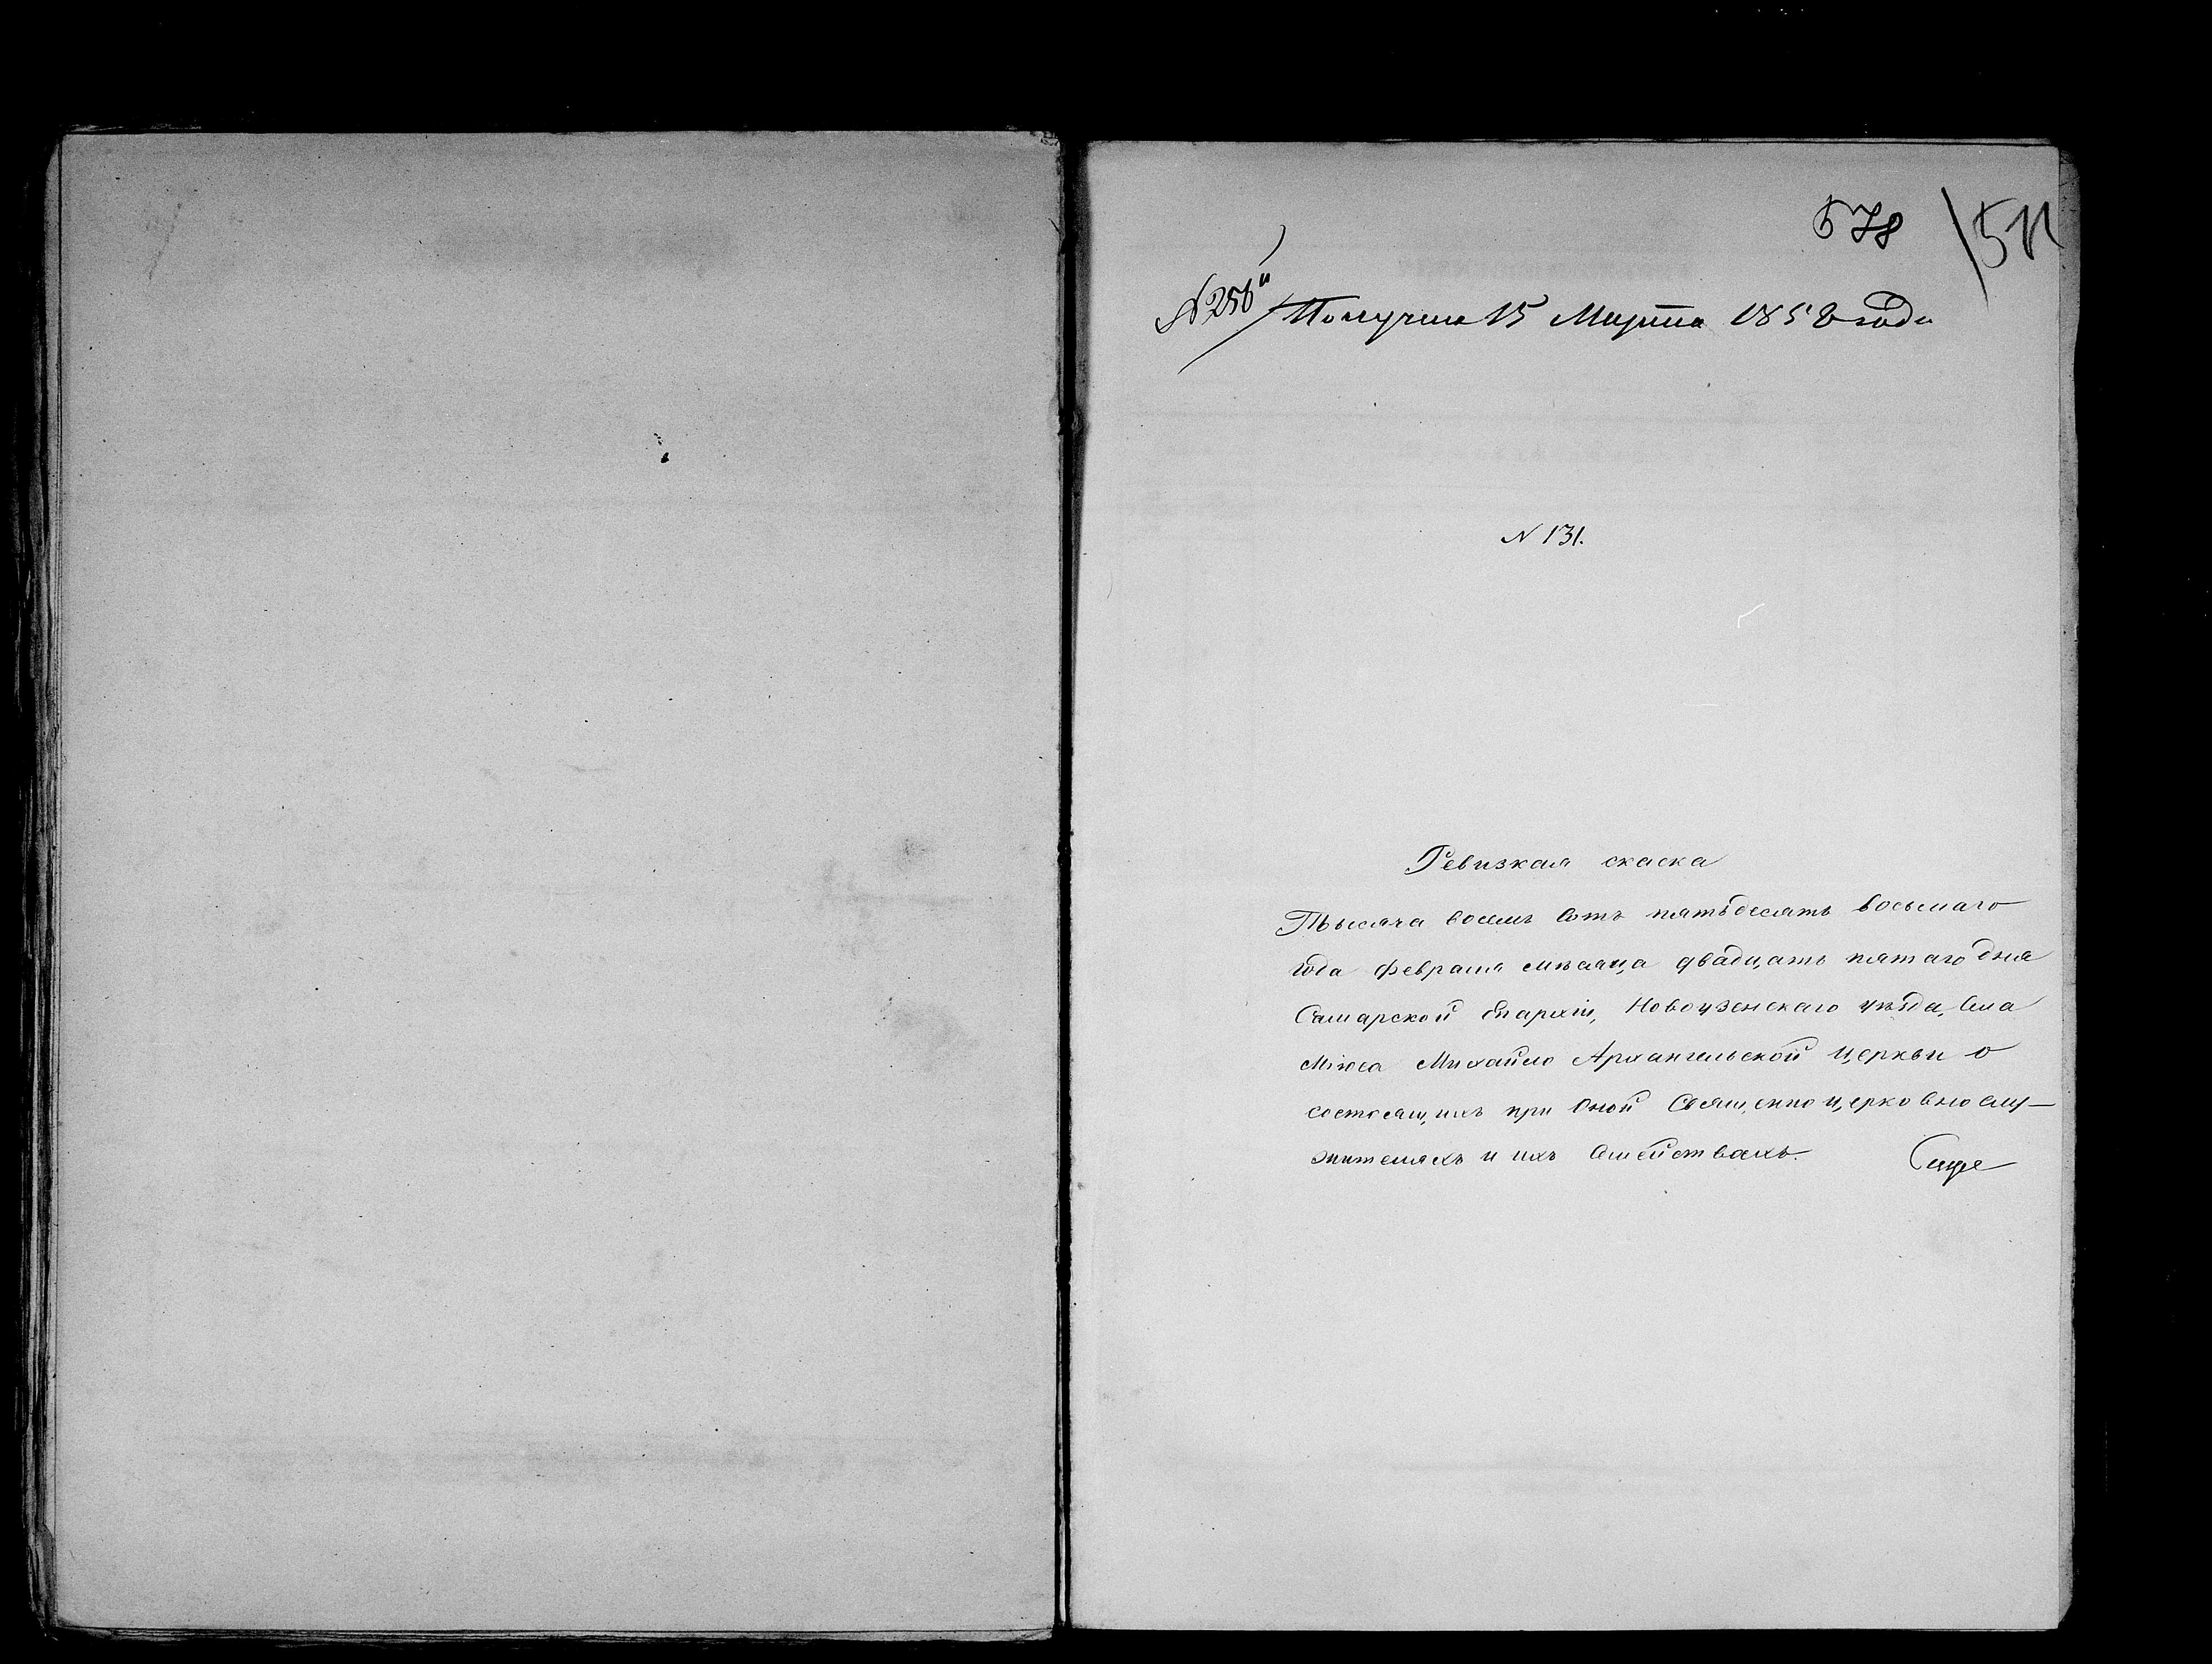 578
№ 256"
Получена 15 Марта 1858 года
N 131.
Ревизкая скаска
Тысяча восемь сотъ пятьдесятъ восьмаго
года Февраля мѣсяца двадцать пятаго дня
Самарской Епархіи, Новоузенскаго уѣзда, Села
Міюса Михайло Архангельской церкви о
состоящихъ при оной Священно церковнослу-
жителяхъ и ихъ семействахъ.